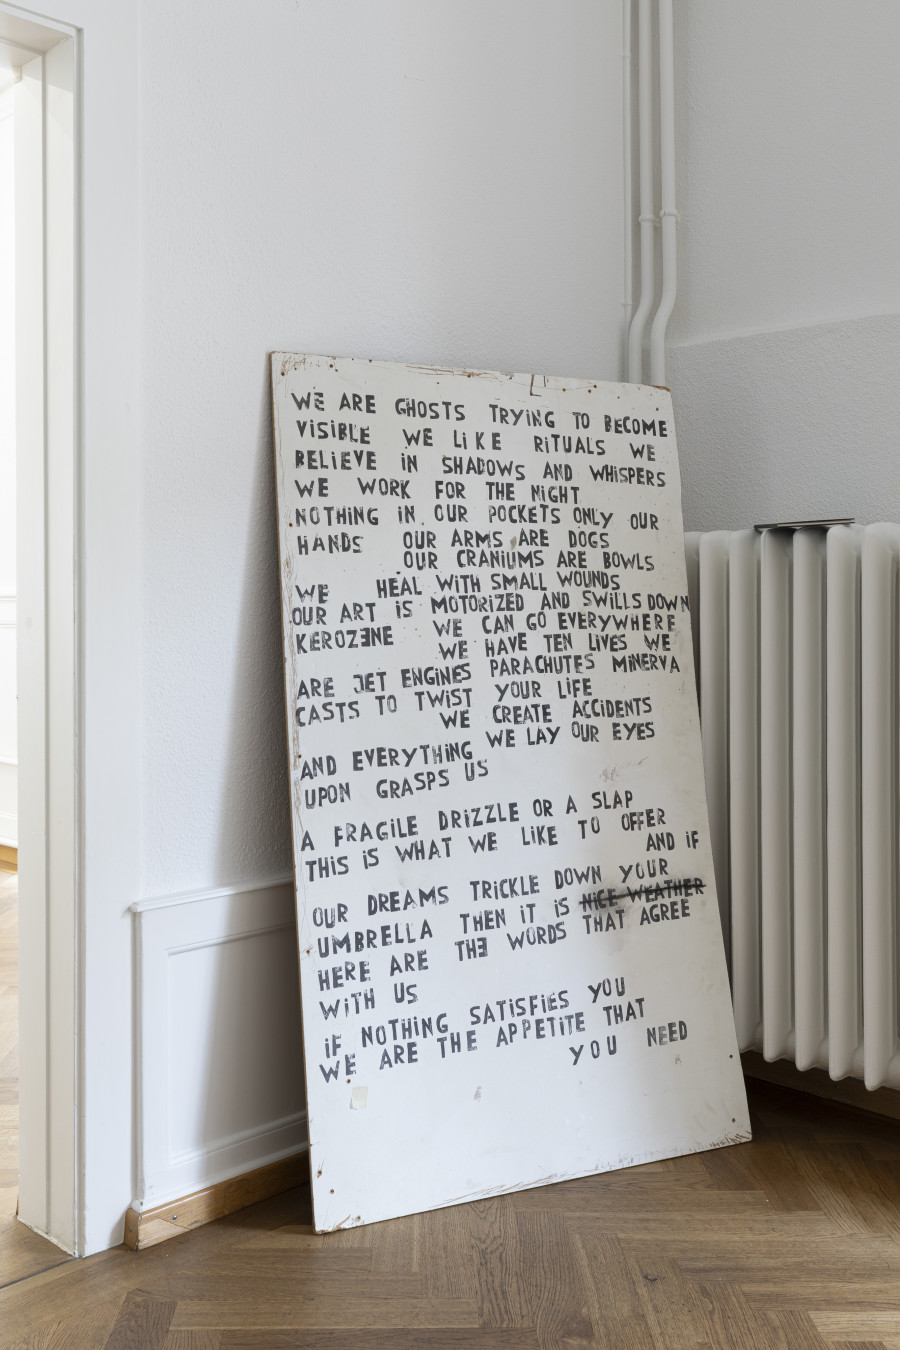 WE ARE GHOSTS TRYiNG TO BECOME
ViSiBLE WE LiKE RiTUALS WE
BELiEVE iN SHADOWS AND WHiSPERS
WE WORK FOR THE NiGHT
NOTHING iN OUR POCKETS ONLY OUR
HANDS OUR ARMS ARE DOGS
OUR CRANiUMS ARE BOWLS
WE HEAL WiTH SMALL WOUNDS
OUR ART iS MOTORiZED AND SWiLLS DOWN
KEROZENE WE CAN GO EVERYWHERE
WE HAVE TEN LiVES WE
ARE JET ENGiNES PARACHUTES MiNERVA
CASTS TO TWiST YOUR LiFE
WE CREATE ACCiDENTS
AND EVERYTHiNG WE LAY OUR EYES
UPON GRASPS US
A FRAGiLE DRiZZLE OR A SLAP
THiS iS WHAT WE LiKE TO OFFER
AND iF
OUR DREAMS TRiCKLE DOWN YOUR
UMBRELLA THEN iT iS NiCE WEATHER
HERE ARE THE WORDS THAT AGREE
WiTH US
iF NOTHiNG SATiSFiES YOU
WE ARE THE APPETiTE THAT
YOU NEED